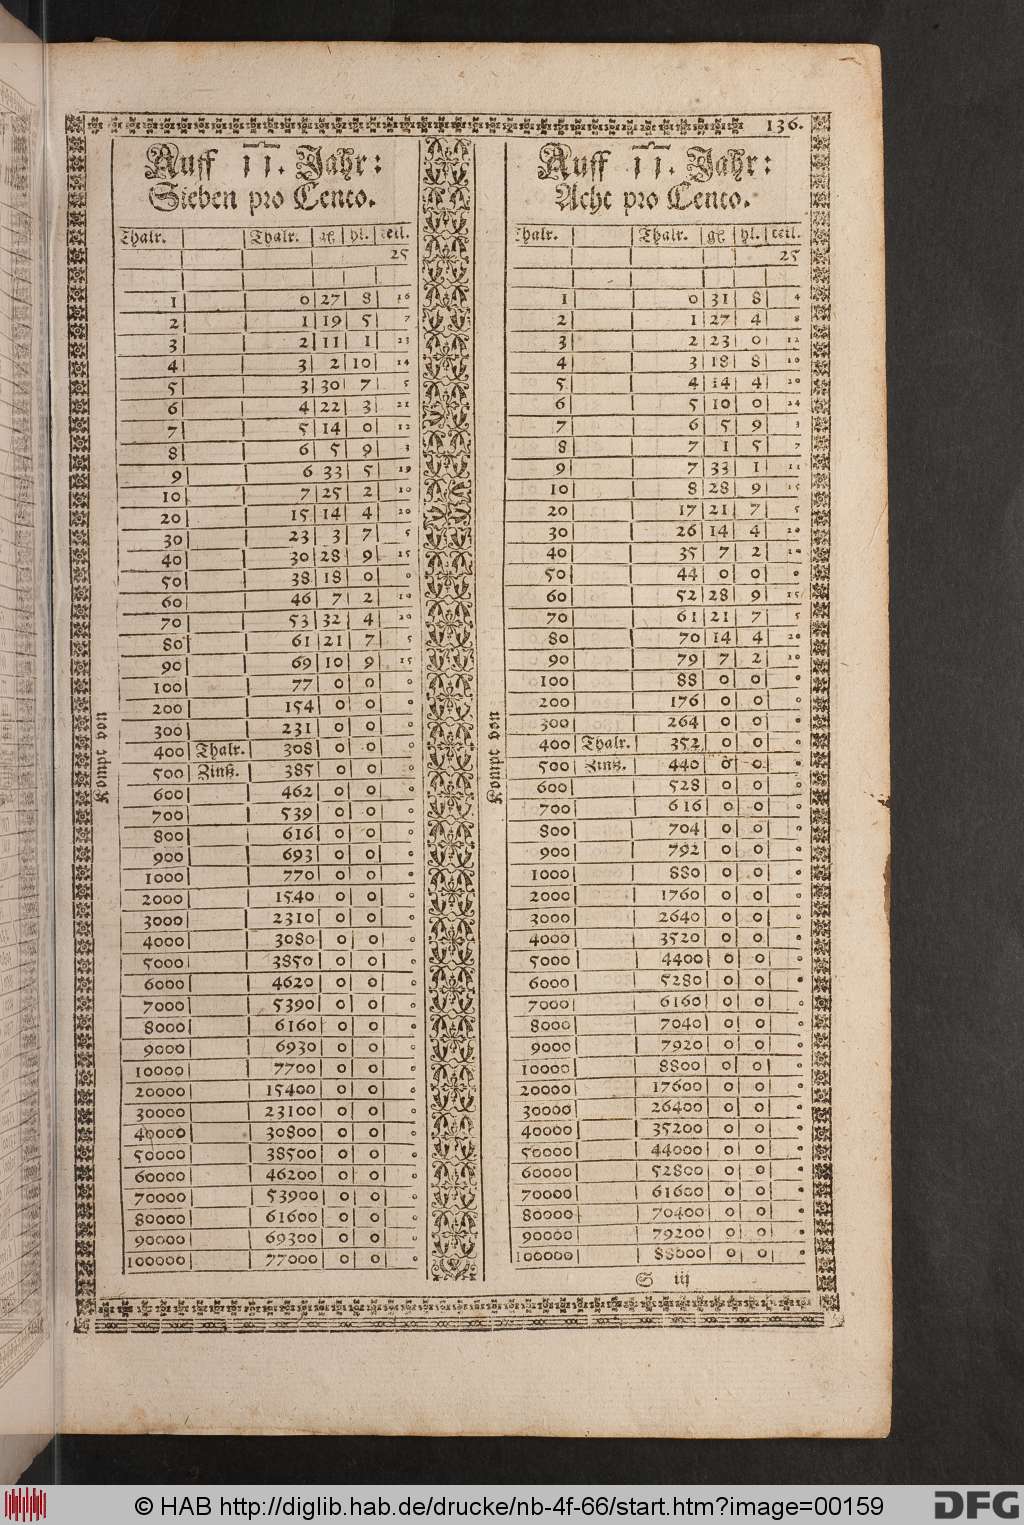 136.
Auff 11. Jahr:
Sieben pro Cento.
Thalr. Thalr. gℓ hl. teil.
25
1 0 27 8 16
2 1 19 5 7
3 2 11 1 23
4 3 2 10 14
5 3 30 7 5
6 4 22 3 21
7 5 14 0 12
8 6 5 9 3
9 6 33 5 19
10 7 25 2 10
20 15 14 4 20
30 23 3 7 5
40 30 28 9 15
50 38 18 0 0
60 46 7 2 10
70 53 32 4 20
80 61 21 7 5
90 69 10 9 15
100 77 0 0 0
200 154 0 0 0
300 231 0 0 0
400 Thalr. 308 0 0 0
500 Zinß. 385 0 0 0
600 462 0 0 0
700 539 0 0 0
800 616 0 0 0
900 693 0 0 0
1000 770 0 0 0
2000 1540 0 0 0
3000 2310 0 0 0
4000 3080 0 0 0
5000 3850 0 0 0
6000 4620 0 0 0
7000 5390 0 0 0
8000 6160 0 0 0
9000 6930 0 0 0
10000 7700 0 0 0
20000 15400 0 0 0
30000 23100 0 0 0
40000 30800 0 0 0
50000 38500 0 0 0
60000 46200 0 0 0
70000 53900 0 0 0
80000 61600 0 0 0
90000 69300 0 0 0
100000 77000 0 0 0
Kompt von
Auff 11. Jahr:
Acht pro Cento.
Thalr. Thalr. gℓ hl. teil.
25
1 0 31 8 4
2 1 27 4 8
3 2 23 0 12
4 3 18 8 16
5 4 14 4 20
6 5 10 0 24
7 6 5 9 3
8 7 1 5 7
9 7 33 1 11
10 8 28 9 15
20 17 21 7 5
30 26 14 4 20
40 35 7 2 10
50 44 0 0 0
60 52 28 9 15
70 61 21 7 5
80 70 14 4 20
90 79 7 2 10
100 88 0 0 0
200 176 0 0 0
300 264 0 0 0
400 Thalr. 352 0 0 0
500 Zinß. 440 0 0 0
600 528 0 0 0
700 616 0 0 0
800 704 0 0 0
900 792 0 0 0
1000 880 0 0 0
2000 1760 0 0 0
3000 2640 0 0 0
4000 3520 0 0 0
5000 4400 0 0 0
6000 5280 0 0 0
7000 6160 0 0 0
8000 7040 0 0 0
9000 7920 0 0 0
10000 8800 0 0 0
20000 17600 0 0 0
30000 26400 0 0 0
40000 35200 0 0 0
50000 44000 0 0 0
60000 52800 0 0 0
70000 61600 0 0 0
80000 70400 0 0 0
90000 79200 0 0 0
100000 88000 0 0 0
Kompt von
S iij
© HAB http://diglib.hab.de/drucke/nb-4f-66/start.htm?image=00159
DFG